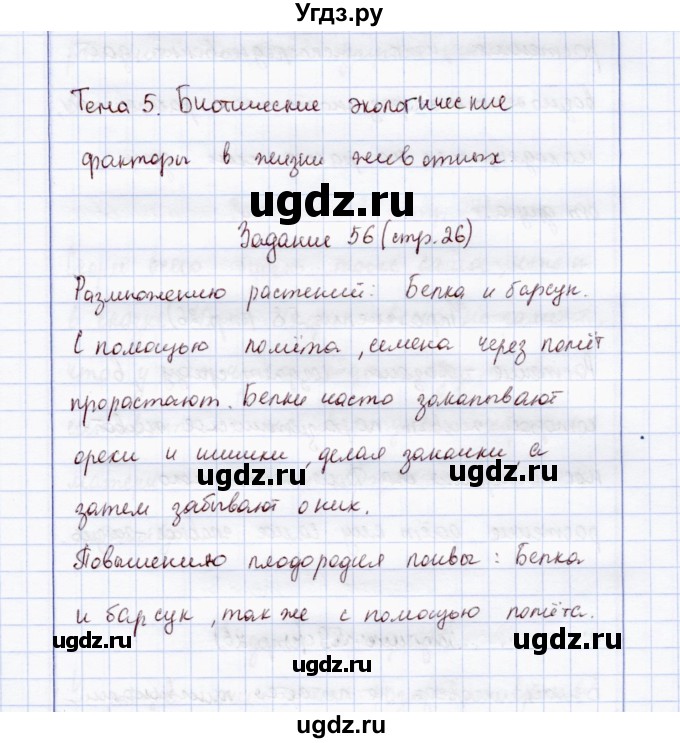 Угдз.ру
Тема 5. Биотические экологические
факторы в жизни животных
ugdz.ru
Задание 56 (стр. 26)
Размножению растений: Белка и барсук.
С помощью помёта, семена через помёт
прорастают. Белки часто закапывают
орехи и шишки, делая заначки, а
ugdz.ru ugdz.ru
затем забывают о них.
Повышению плодородия почвы: Белка
и барсук, также с помощью помёта.
ugdz.ru ugdz.ru
ugdz.ru
ugdz.ru